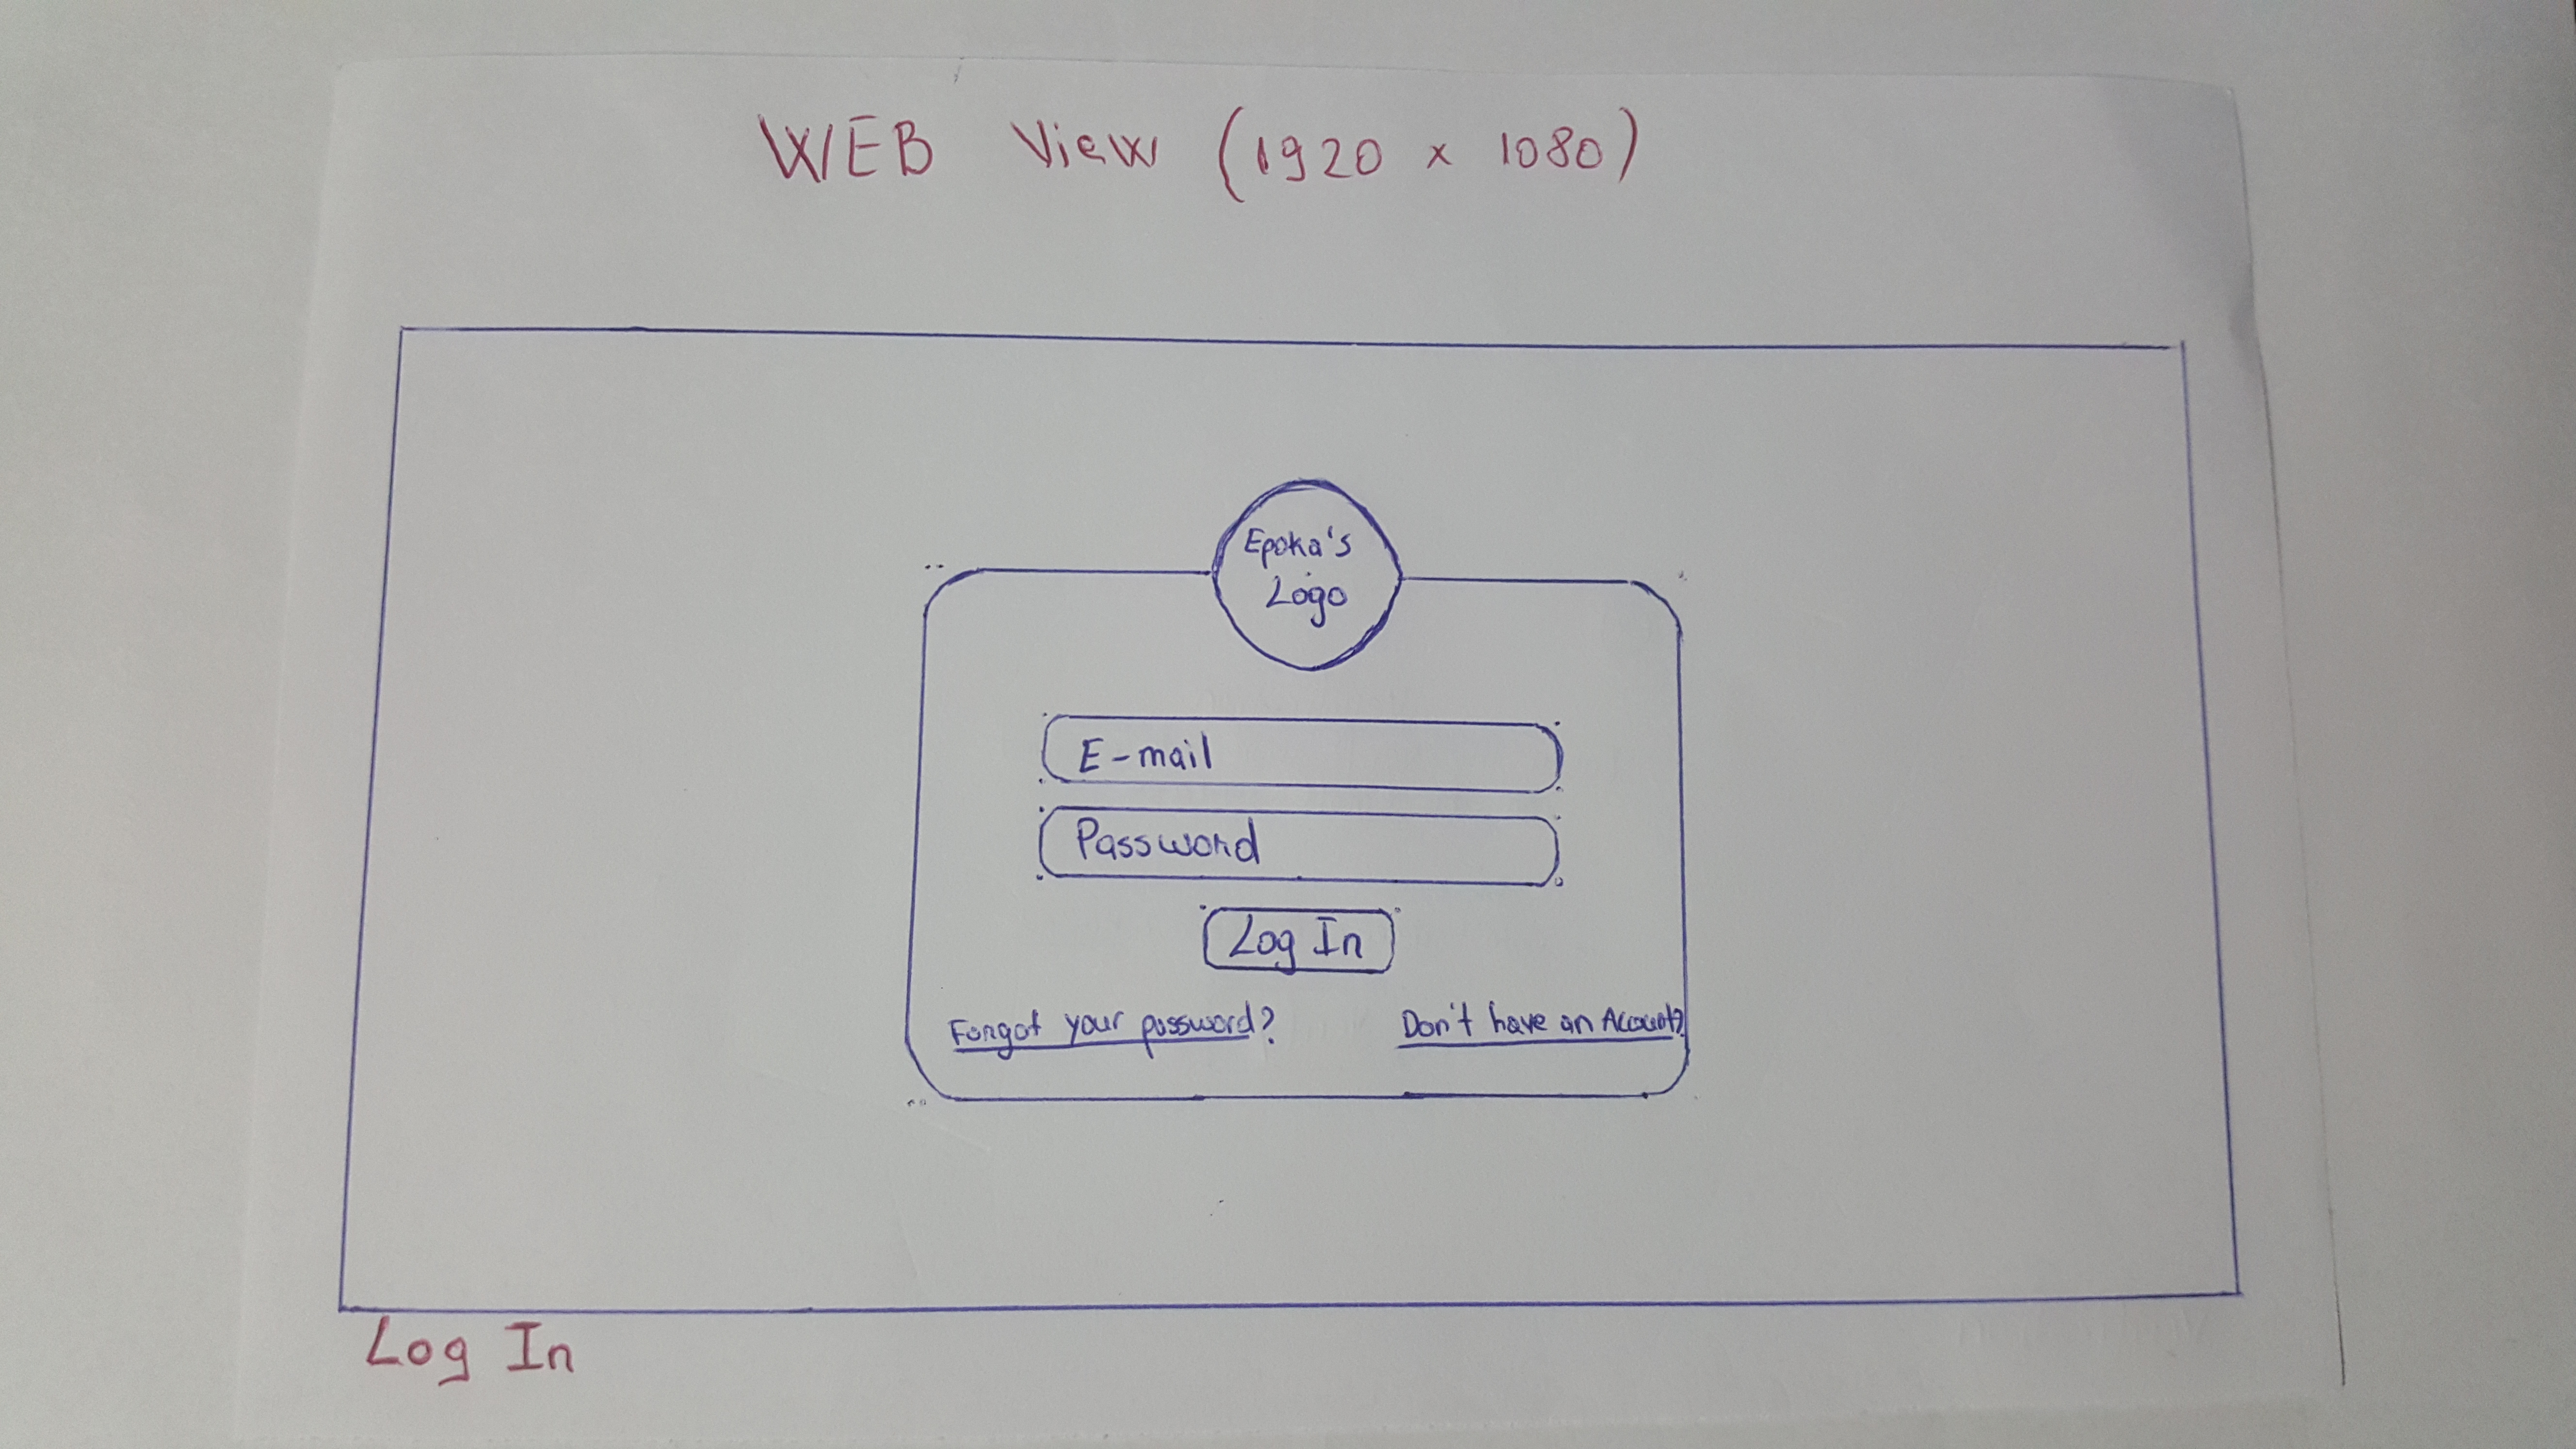 WEB View (1920 x 1080)
Epoka's
Logo
E-mail
Password
Log In
Forgot your password?
Don't have an Account?
Log In